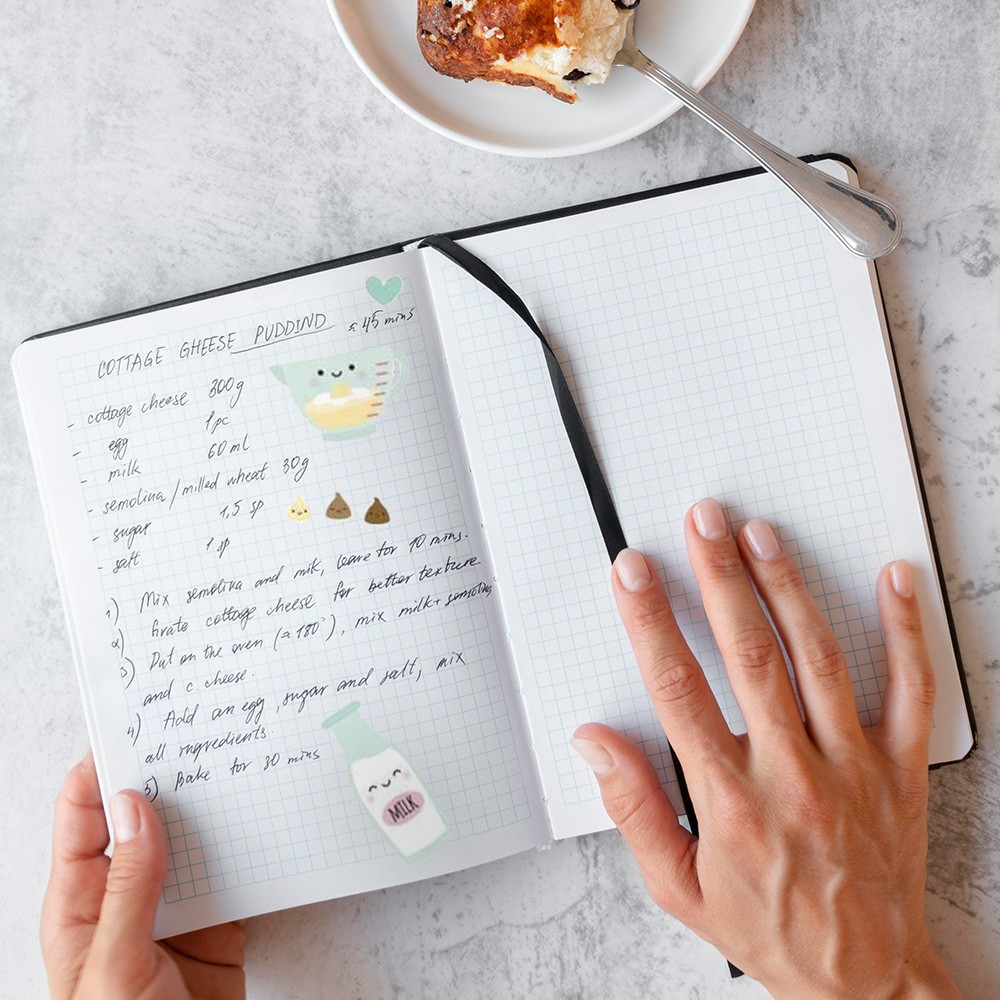 COTTAGE GHEESE PUDDIND
≈ 45 mins
- cottage cheese 300g
- egg 1pc
- milk 60 ml
- semolina / milled wheat 30g
- sugar 1,5 sp
- salt 1 sp
1) Mix semolina and milk, leave for 10 mins.
2) Grate cottage cheese for better texture
3) Put on the oven (≈ 180°), mix milk + semolina
and c. cheese.
4) Add an egg, sugar and salt, mix
all ingredients.
5) Bake for 30 mins
MILK